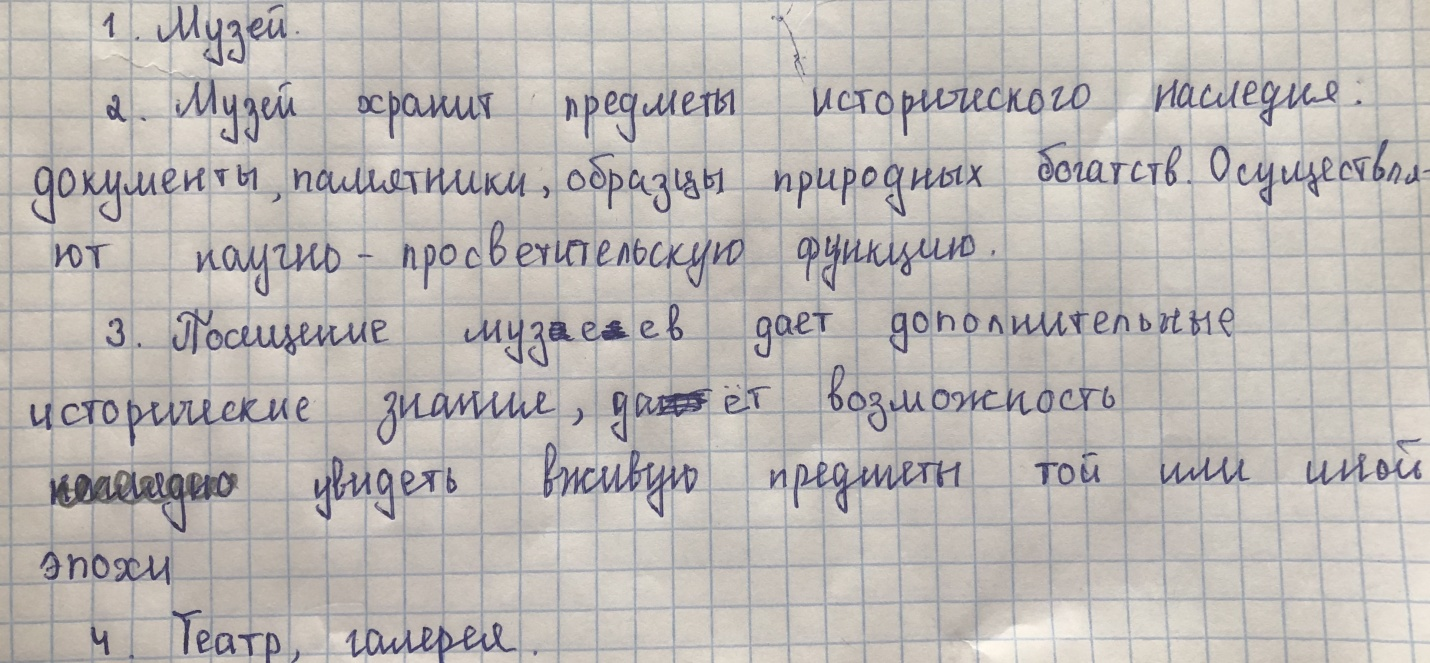 1. Музей.
2. Музей хранит предметы исторического наследия:
документы, памятники, образцы природных богатств. Осуществля-
ют научно-просветительскую функцию.
3. Посещение музеев дает дополнительные
исторические знания, даёт возможность
увидеть вживую предметы той или иной
эпохи
4. Театр, галерея.